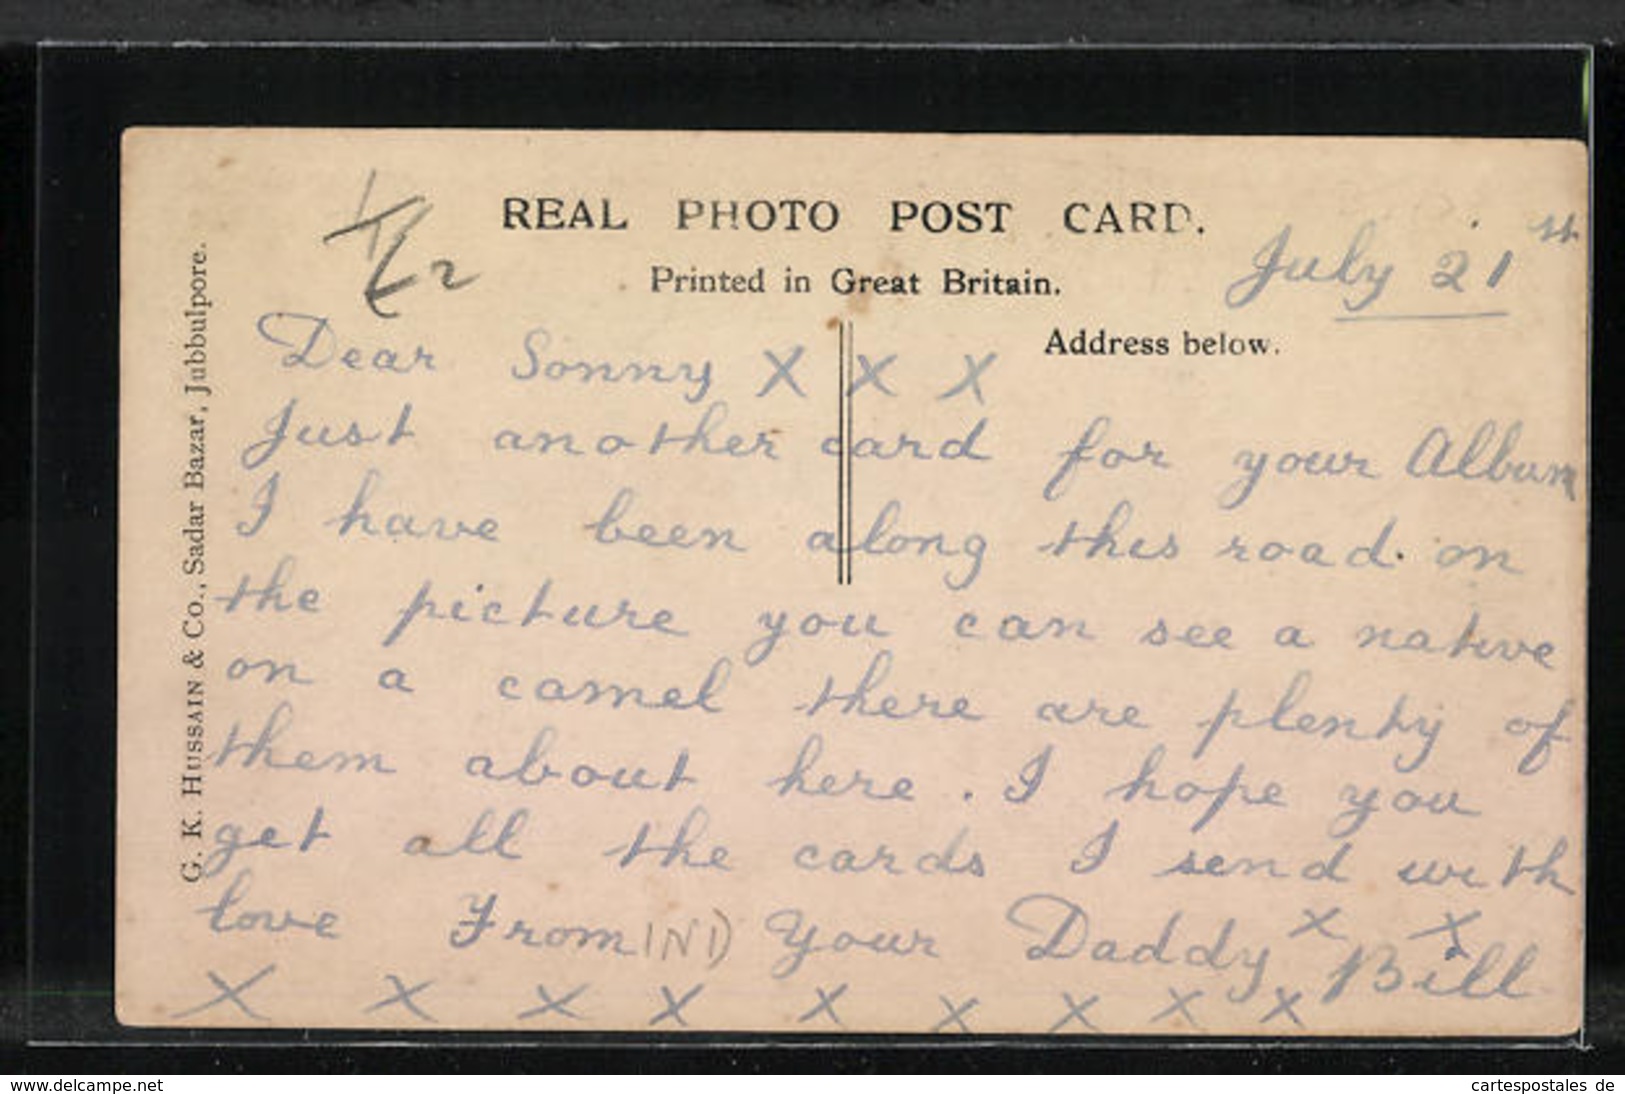 REAL PHOTO POST CARD.
Printed in Great Britain.
July 21st
Address below.
Dear Sonny X X X
Just another card for your Album
I have been along this road. on
the picture you can see a native
on a camel there are plenty of
them about here. I hope you
get all the cards I send with
love From IND Your Daddy Bill
X X
X X X X X X X X X
G. K. HUSSAIN & CO., Sadar Bazar, Jubbulpore.
www.delcampe.net
cartespostales de